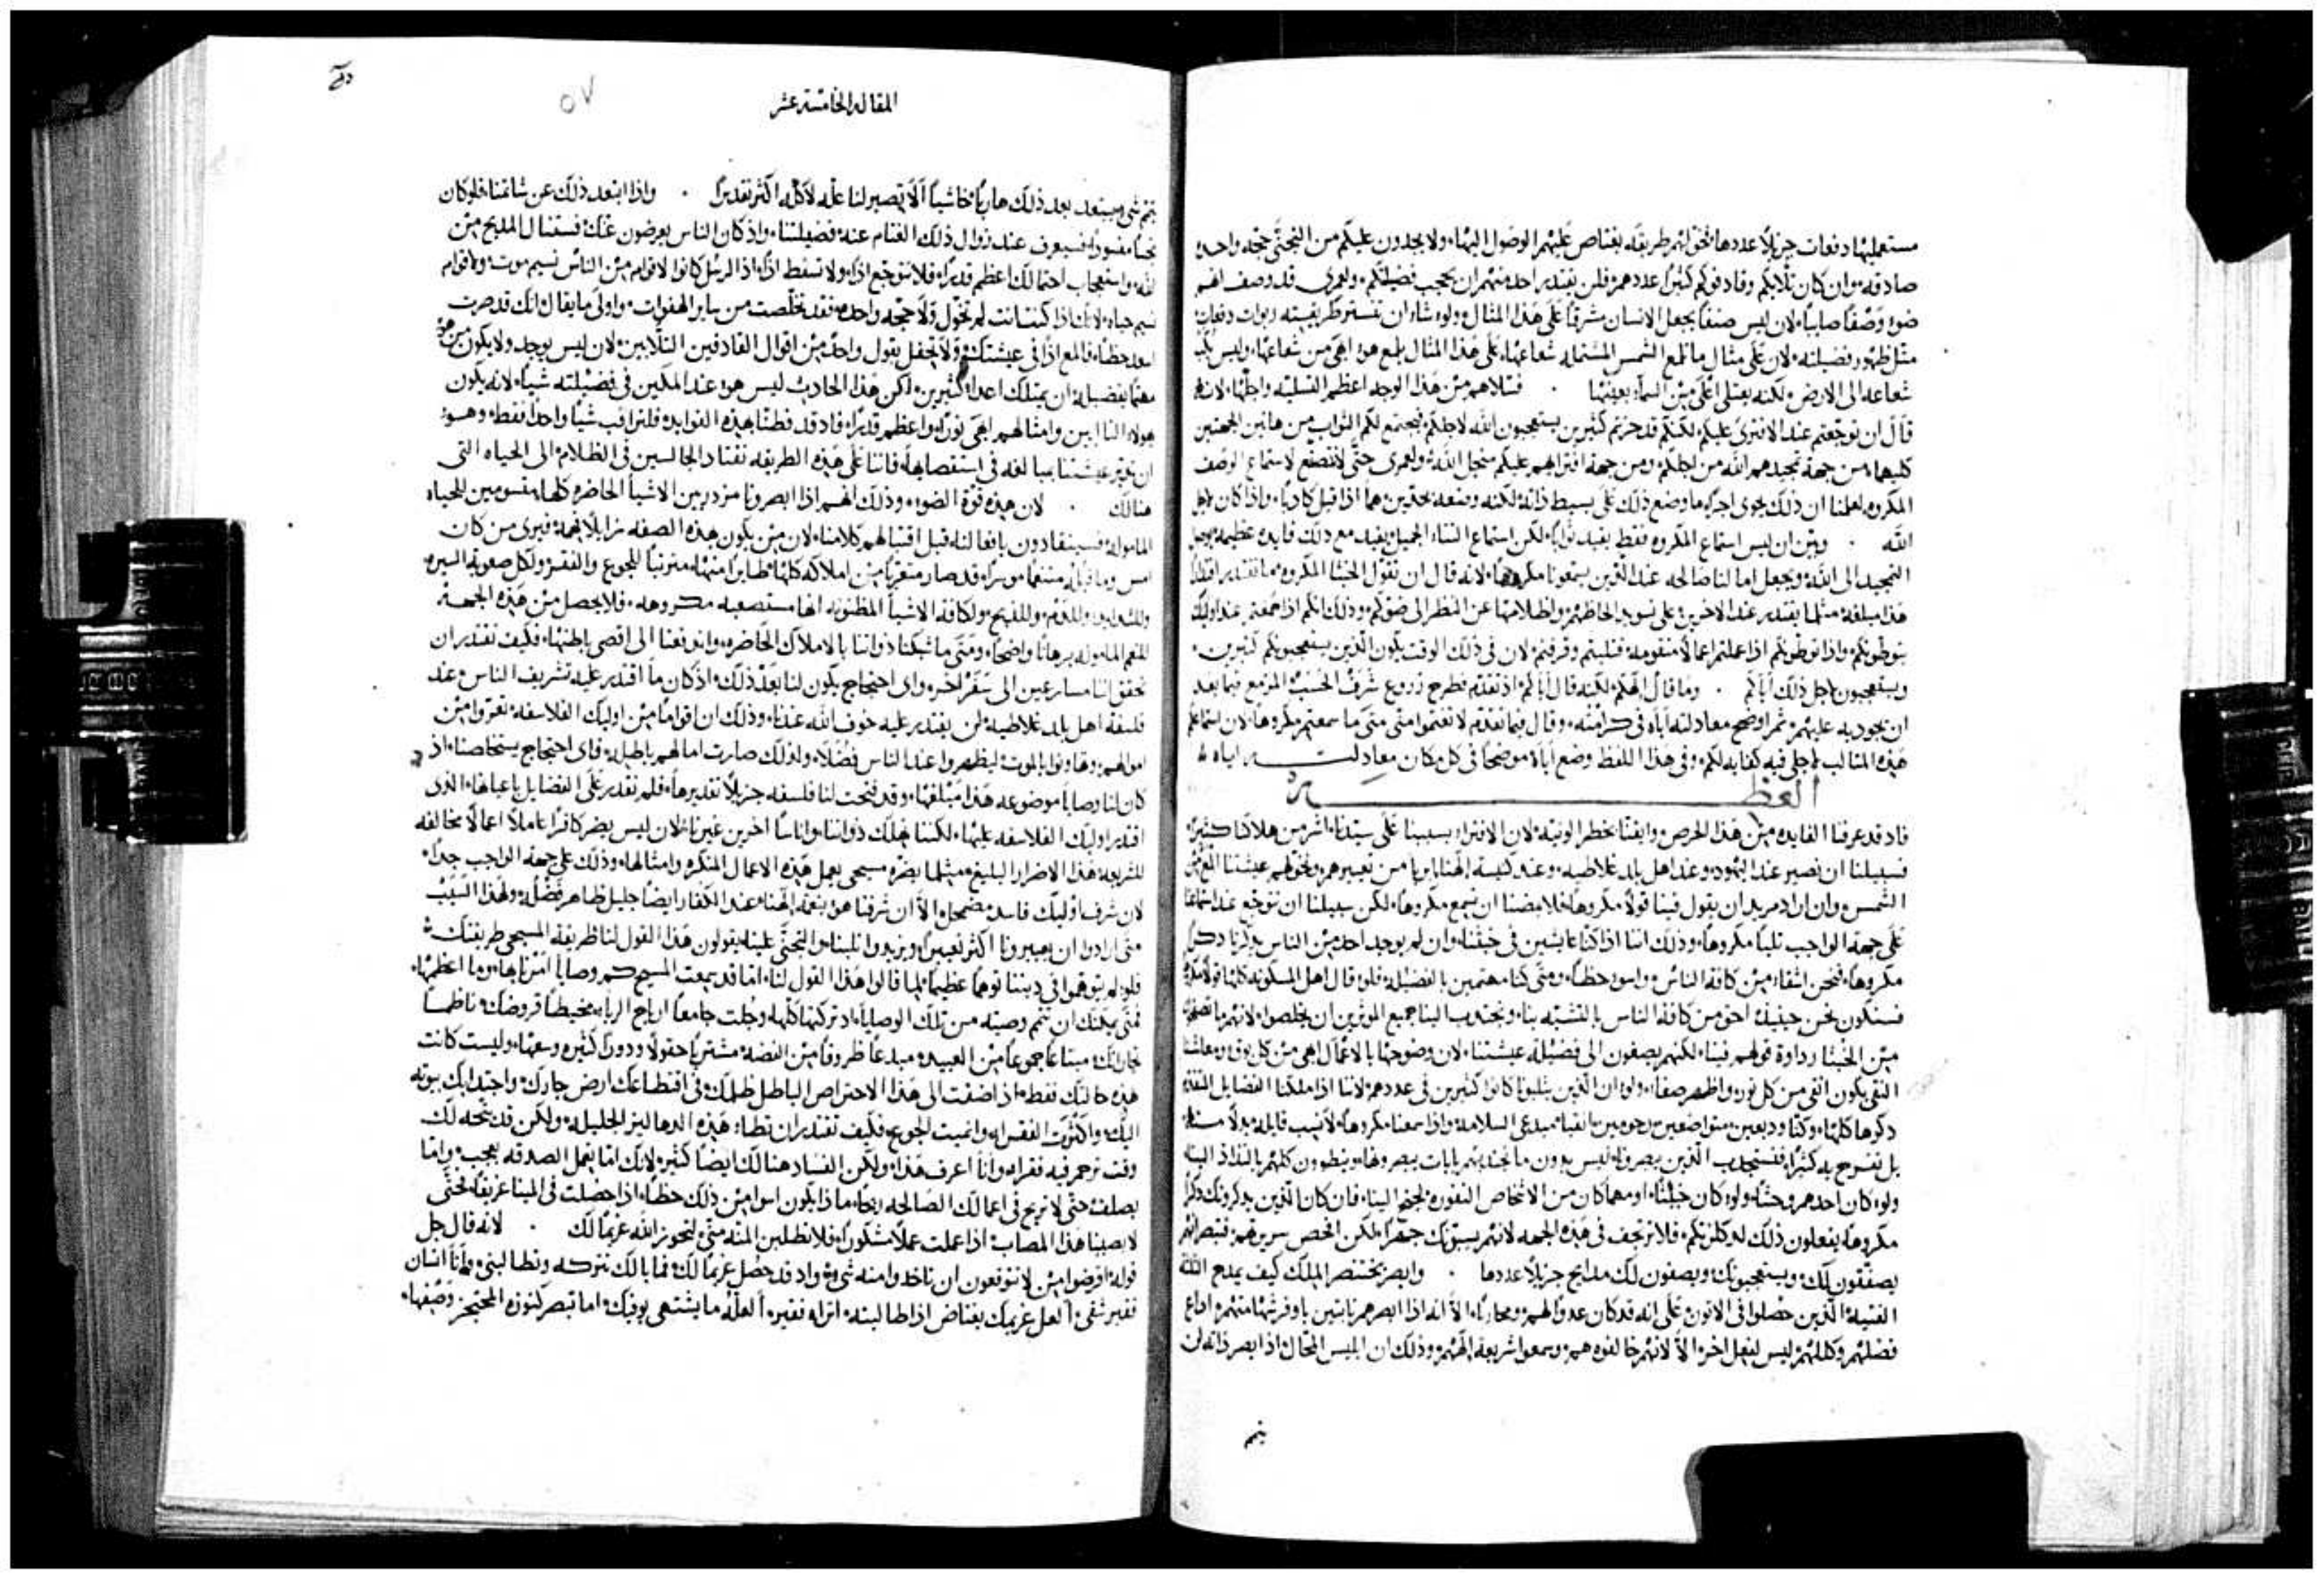 مستعمليها دفعات جزيلاً عددها نحو لهم طريقه يعتاص عليهم الوصول اليها ولا يجدون عليكم من التجني حجه واحده
صادقه وان كان ثلابكم وقاذفوكم كثيرا عددهم فلن يقتدر احد منهم ان يحجب فضيلتكم ولعمري قد وصف لهم
ضوه وصفا صايبا لان ليس صنفا يجعل الانسان مشرقا على هذا المثال ولو شاء ان تستتر طريقته ربوات دفعات
مثل ظهور فضيلته لان على مثال ما تلمع الشمس المشتمله شعاعها على هذا المثال يلمع هو ابهى من شعاعها وليس يثبت
شعاعه الى الارض لكنه يعتلي اعلى من السماء بعينها فسلاهم من هذا الوجه اعظم التسليه واجلها لانه
قال ان توجعتم عند الافتري عليكم لكنكم قد حزتم كثيرين يستعجبون الله لاجلكم فيجتمع لكم الثواب من هاتين الجهتين
كليهما من جهة تمجيدهم الله من اجلكم ومن جهة افترايهم عليكم من اجل الله ولعمري حتى لا نتصنع لاستماع الوصف
المكروه لعلمنا ان ذلك يحوي اجرا ما وضع ذلك على بسيط ذاته لكنه وضعه بحدين هما اذا قيل كاذبا واذا كان لاجل
الله وبين ان ليس استماع المكروه فقط يفيد ثوابا لكن استماع الثناء الجميل يفيد مع ذلك فايده عظيمه يوصل
التمجيد الى الله ويجعل امالنا صالحه عند الذين يسمعونا مكروها لانه قال ان تقول الخبثا المكروه مما تقتدر اقتدارا
هذا مبلغه مثلما يقتدر عند الاخرين على تسويد الحاظهم واظلامها عن النظر الى ضوكم وذلك انكم اذا حمقتم عند اوليك
يتوطونكم واذا توطونكم اذا عملتم اعمالا متقومه فثلبتم وقرفتم لان في ذلك الوقت يكون الذين يستعجبونكم كثيرين
ويستعجبون لاجل ذلك اباكم وما قال الهكم لكنه قال اباكم اذ تقدم فطرح زروع شرف الحسب المزمع فيما بعد
ان يجود به عليهم ثم اوضح معادلته اباه في كرامته وقال فيما تقدم لا تغتموا متى ما سمعتم مكروها لان استماعكم
هذه المثالب لاجلي فيه كفايه لكم وفي هذا اللفظ وضع اباه موضحا في كل مكان معادلته اياه
العظه
فاذ قد عرفنا الفايده من هذا الحرص وايقنا بخطر الونيه لان الافتراء بسببنا على سيدنا اشر من هلاكنا كثيرا
فسبيلنا ان نصير عند اليهود وعند اهل بلد غلاطيه وعند كنيسة الهنا ابريا من تعييرهم ونخولهم عيشتنا المع من
الشمس وان اراد مريد ان يقول فينا قولا مكروها فلا يمضنا ان يسمع مكروها لكن سبيلنا ان نتوجع عند استماعنا
على جهة الواجب ثلبا مكروها وذلك اننا اذا كنا عايشين في خبثنا وان لم يوجد احد من الناس يذكرنا ذكرا
مكروها فنحن اشقاء من كافة الناس واسو حظا ومتى كنا مهتمين بالفضيله فلو قال اهل المسكونه كلها قولا مكروها
فسنكون نحن حينيذ احق من كافة الناس بالتشبه بنا ويجتذب الينا جميع الموثرين ان يخلصوا لانهم ما تصحهم
من الخبثا رداوة قولهم فينا لكنهم يصغون الى فضيلة عيشتنا لان وضوحها بالاعمال ابهى من كل بوق ومعاشنا
النقي يكون انقى من كل نور واظهر صفاء ولو ان الذين يثلبونا كانوا كثيرين في عددهم لاننا اذا ملكنا الفضايل المقدم
ذكرها كلها وكنا وديعين متواضعين رحومين انقيا مبدعي السلامه واذا سمعنا مكروها لا نثيب قايله بدلا منه
بل نفرح به كثيرا فنستجذب الذين يبصرونا ليس بدون ما تجذبهم ايات يبصرونها وينطوون كلهم بالتذاذ الينا
ولو كان احدهم وحشا ولو كان خبيثا او مهما كان من الاشخاص النفوره يجنح الينا فان كان الذين يذكرونك ذكرا
مكروها يفعلون ذلك لدى كلرتكم فلا ترتجف في هذه الجهه لانهم يسبونك جهرا لكن افحص سريرتهم فتبصرهم
يصفقون لك ويستعجبونك ويصفون لك مدايح جزيلا عددها وابصر بختنصر الملك كيف يمدح الثلثة
الفتيه الذين حصلوا في الاتون على انه قد كان عدوا لهم ومحاربا الا انه اذ ابصرهم ثابتين باوفر شهامتهم اذاع
فضلهم وكللهم ليس لفعل اخر الا لانهم خالفوه هم وسمعوا شريعة الههم وذلك ان ابليس المحال اذا ابصر ذاته لن
يتم
٥٧
المقاله الخامسه عشر
يتم شي ويبتعد بعد ذلك هاربا خاشيا الا تصير لنا علة لاكلة اكثر تقديرا واذا ابتعد ذلك عن شاتمنا فلو كان
نجسا مفسودا فسيعرف عند زوال ذلك الغتام عنه فضيلتنا واذ كان الناس يعرضون عنك فستنال المديح من
الله واستعجاب احتمالك اعظم قدرا فلا تتوجع اذا ولا تسقط اذا اذ الرسل كانوا لاقوام من الناس نسيم موت ولاقوام
نسيم حياه لانك اذا كنت انت لم تخول ولا حجه واحده فقد تخلصت من ساير الهفوات واولى ما يقال انك قد صرت
اسعد حظا فالمع اذا في عيشتك ولا تجفل بقول واحد من اقوال القاذفين الثلابين لان ليس يوجد ولا يكون من هو
مهتما بفضيله ان يمتلك اعداء كثيرين لكن هذا الحادث ليس هو عند المكين في فضيلته شيا لانه يكون
بهولاء الثلابين وامثالهم ابهى نورا واعظم قدرا فاذ قد فطنا بهذه الفوايد فلنراقب شيا واحدا فقط وهو
ان نقوم عيشتنا مبالغه في استقصايها فاننا على هذه الطريقه نقتاد الجالسين في الظلام الى الحياه التي
هنالك لان هذه قوة الضوء وذلك انهم اذا ابصرونا مزدرين الاشيا الحاضره كلها متسومين للحياه
المأموله فسينقادون بافعالنا قبل اقتبالهم كلامنا لان من يكون بهذه الصفه زايلا فهمه فيرى من كان
امس وما قبله متنعما موسرا قد صار متعريا من املاكه كلها طايرا منها مترتبا للجوع والفقر ولكل صعوبة السيره
وللشدايد وللدم وللذبح ولكافة الاشيا المظنون انها مستصعبه مكروهه فلا يحصل من هذه الجهه
للنعم المأموله برهانا واضحا ومتى ما شبكنا ذواتنا بالاملاك الحاضره واندفعنا الى اقصى باطنها فكيف نقتدر ان
نحقق اننا مسارعين الى سفر اخر واي احتجاج يكون لنا بعد ذلك اذ كان ما اقتدر عليه تشريف الناس عند
فلسفة اهل بلد غلاطيه لن يقتدر عليه خوف الله عندنا وذلك ان اقواما من اوليك الفلاسفه تعروا من
اموالهم وتهاونوا بالموت ليظهروا عند الناس فضلاء ولذلك صارت امالهم باطله فاي احتجاج يستخلصنا اذ
كان لنا وصايا موضوعه هذا مبلغها وقد فتحت لنا فلسفه جزيلا تقديرها فلم نقدر على الفضايل باعيانها الذي
اقتدر اوليك الفلاسفه عليها لكننا نهلك ذواتنا واناسا اخرين غيرنا لان ليس يضر كافرا عاملا اعمالا مخالفه
للشريعه هذا الاضرار البليغ مثلما يضره مسيحي يعمل هذه الاعمال المنكره وامثالها وذلك على جهة الواجب جدا
لان شرف اوليك فاسد مضمحل الا ان شرفنا هو بنعمة الهنا عند الكفار ايضا جليل ظاهر فضله ولهذا السبب
متى ارادوا ان يعيرونا اكثر تعييرا ويزيدوا ثلبنا والتجني علينا يقولون هذا القول لنا ظريفه المسيحي طريقتك
فلو لم يتوهموا في ديننا توهما عظيما لما قالوا هذا القول لنا اما قد سمعت المسيح كم وصايا امرنا بها وما اعظمها
فمتى يمكنك ان تتم وصيه من تلك الوصايا اذ تركتها كلها وجلت جامعا ارباح الرباء مخيطا قروضك ناظما
تجاراتك مبتاعا جموعا من العبيد مبدعا ظروفا من الفضه مشتريا حقولا ودورا كثيره وسعتها وليست كانت
هذه حالتك فقط اذ اضفت الى هذا الاحتراص الباطل ظلمك في اقتطاعك ارض جارك واجتذابك بيوته
اليك واكثرت الفقراء وانميت الجوع فكيف تقتدر ان تطأ هذه الدهاليز الجليله ولكن قد يتجه لك
وقت ترحم فيه فقراء وانا اعرف هذا ولكن الفساد هنالك ايضا كثير لانك اما تعمل الصدقه بعجب واما
بصلف حتى لا تربح في اعمالك الصالحه ايضا ماذا يكون اسوا من ذلك حظا اذا حصلت في المينا غريقا فحتى
لا يصيبنا هذا المصاب اذا عملت عملا مشكورا فلا تطلبن المنه مني لتحوز الله غريما لك لانه قال جل
قوله اقرضوا من لا تتوقعون ان تاخذوا منه شي واذ قد حصل غريما لك فما بالك تتركه وتطالبني وانا انسان
فقير شقي العل غريمك يعتاض اذا طالبته اتراه فقير العله ما يشتهي يوفيك اما تبصر كنوزه المحتجز وصفها